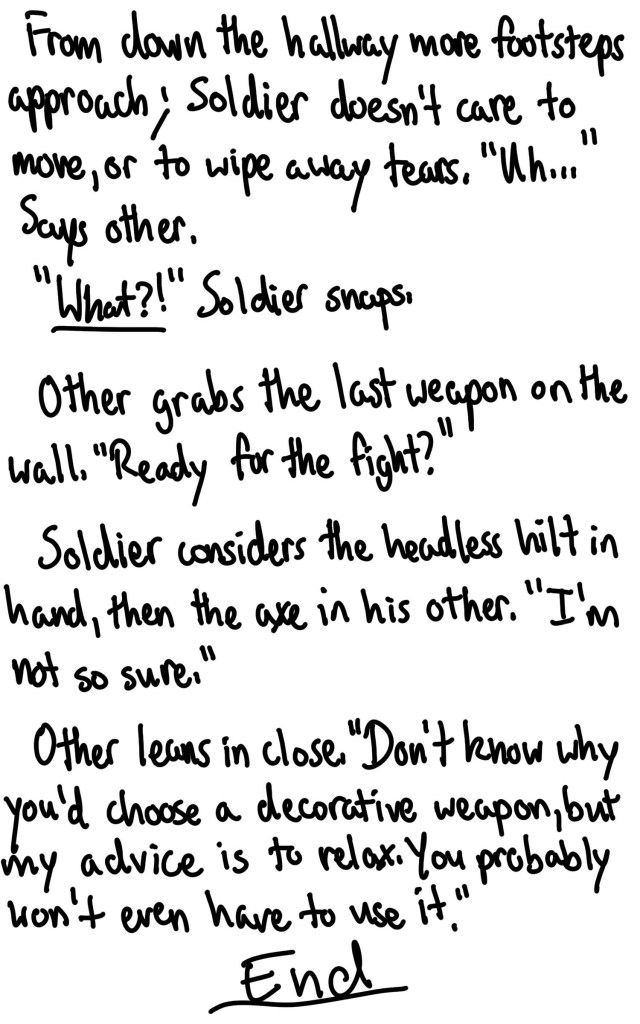 From down the hallway more footsteps
approach; Soldier doesn't care to
move, or to wipe away tears. "Uh..."
Says other.
"What?!" Soldier snaps.
Other grabs the last weapon on the
wall. "Ready for the fight?"
Soldier considers the headless hilt in
hand, then the axe in his other. "I'm
not so sure."
Other leans in close. "Don't know why
you'd choose a decorative weapon, but
my advice is to relax. You probably
won't even have to use it."
End